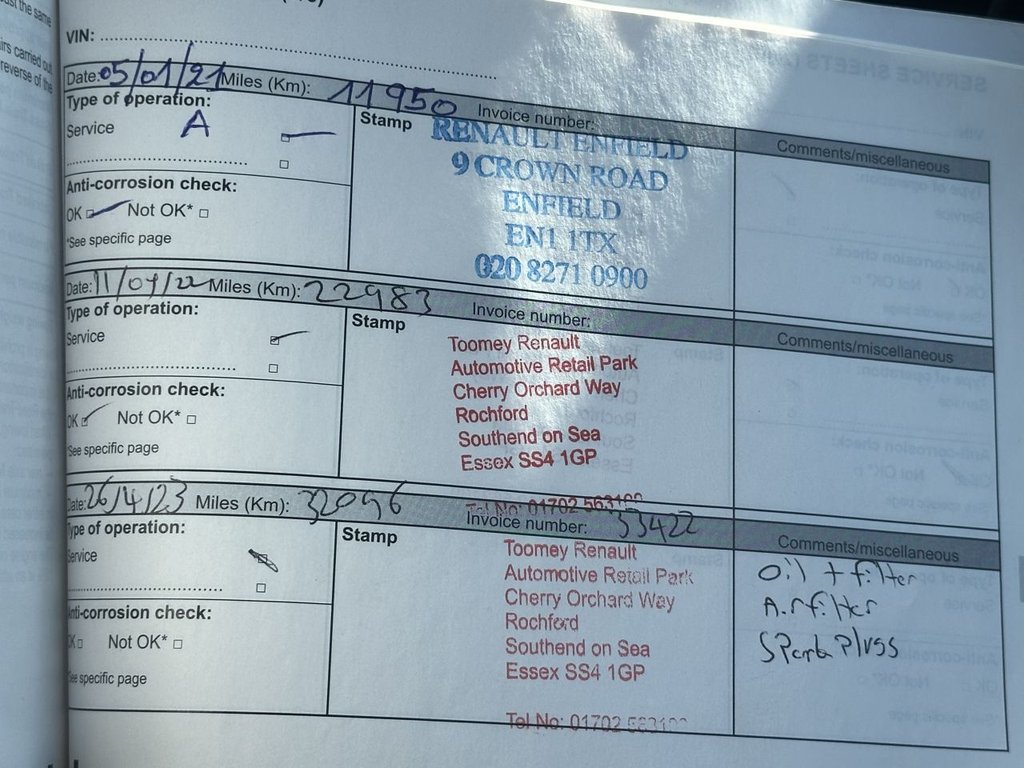 VIN:
Date: 05/01/21 Miles (Km): 11950 Invoice number:
Type of operation:
Service A
Stamp
Comments/miscellaneous
RENAULT ENFIELD
9 CROWN ROAD
ENFIELD
EN1 1TX
020 8271 0900
Anti-corrosion check:
OK Not OK*
*See specific page
Date: 11/04/22 Miles (Km): 22983 Invoice number:
Type of operation:
Service
Stamp
Comments/miscellaneous
Toomey Renault
Automotive Retail Park
Cherry Orchard Way
Rochford
Southend on Sea
Essex SS4 1GP
Tel No: 01702
Anti-corrosion check:
OK Not OK*
*See specific page
Date: 26/4/23 Miles (Km): 32096 Invoice number: 53422
Type of operation:
Service
Stamp
Comments/miscellaneous
Toomey Renault
Automotive Retail Park
Cherry Orchard Way
Rochford
Southend on Sea
Essex SS4 1GP
Tel No: 01702
Oil + filter
Airfilter
Spark Plugs
Anti-corrosion check:
OK Not OK*
See specific page